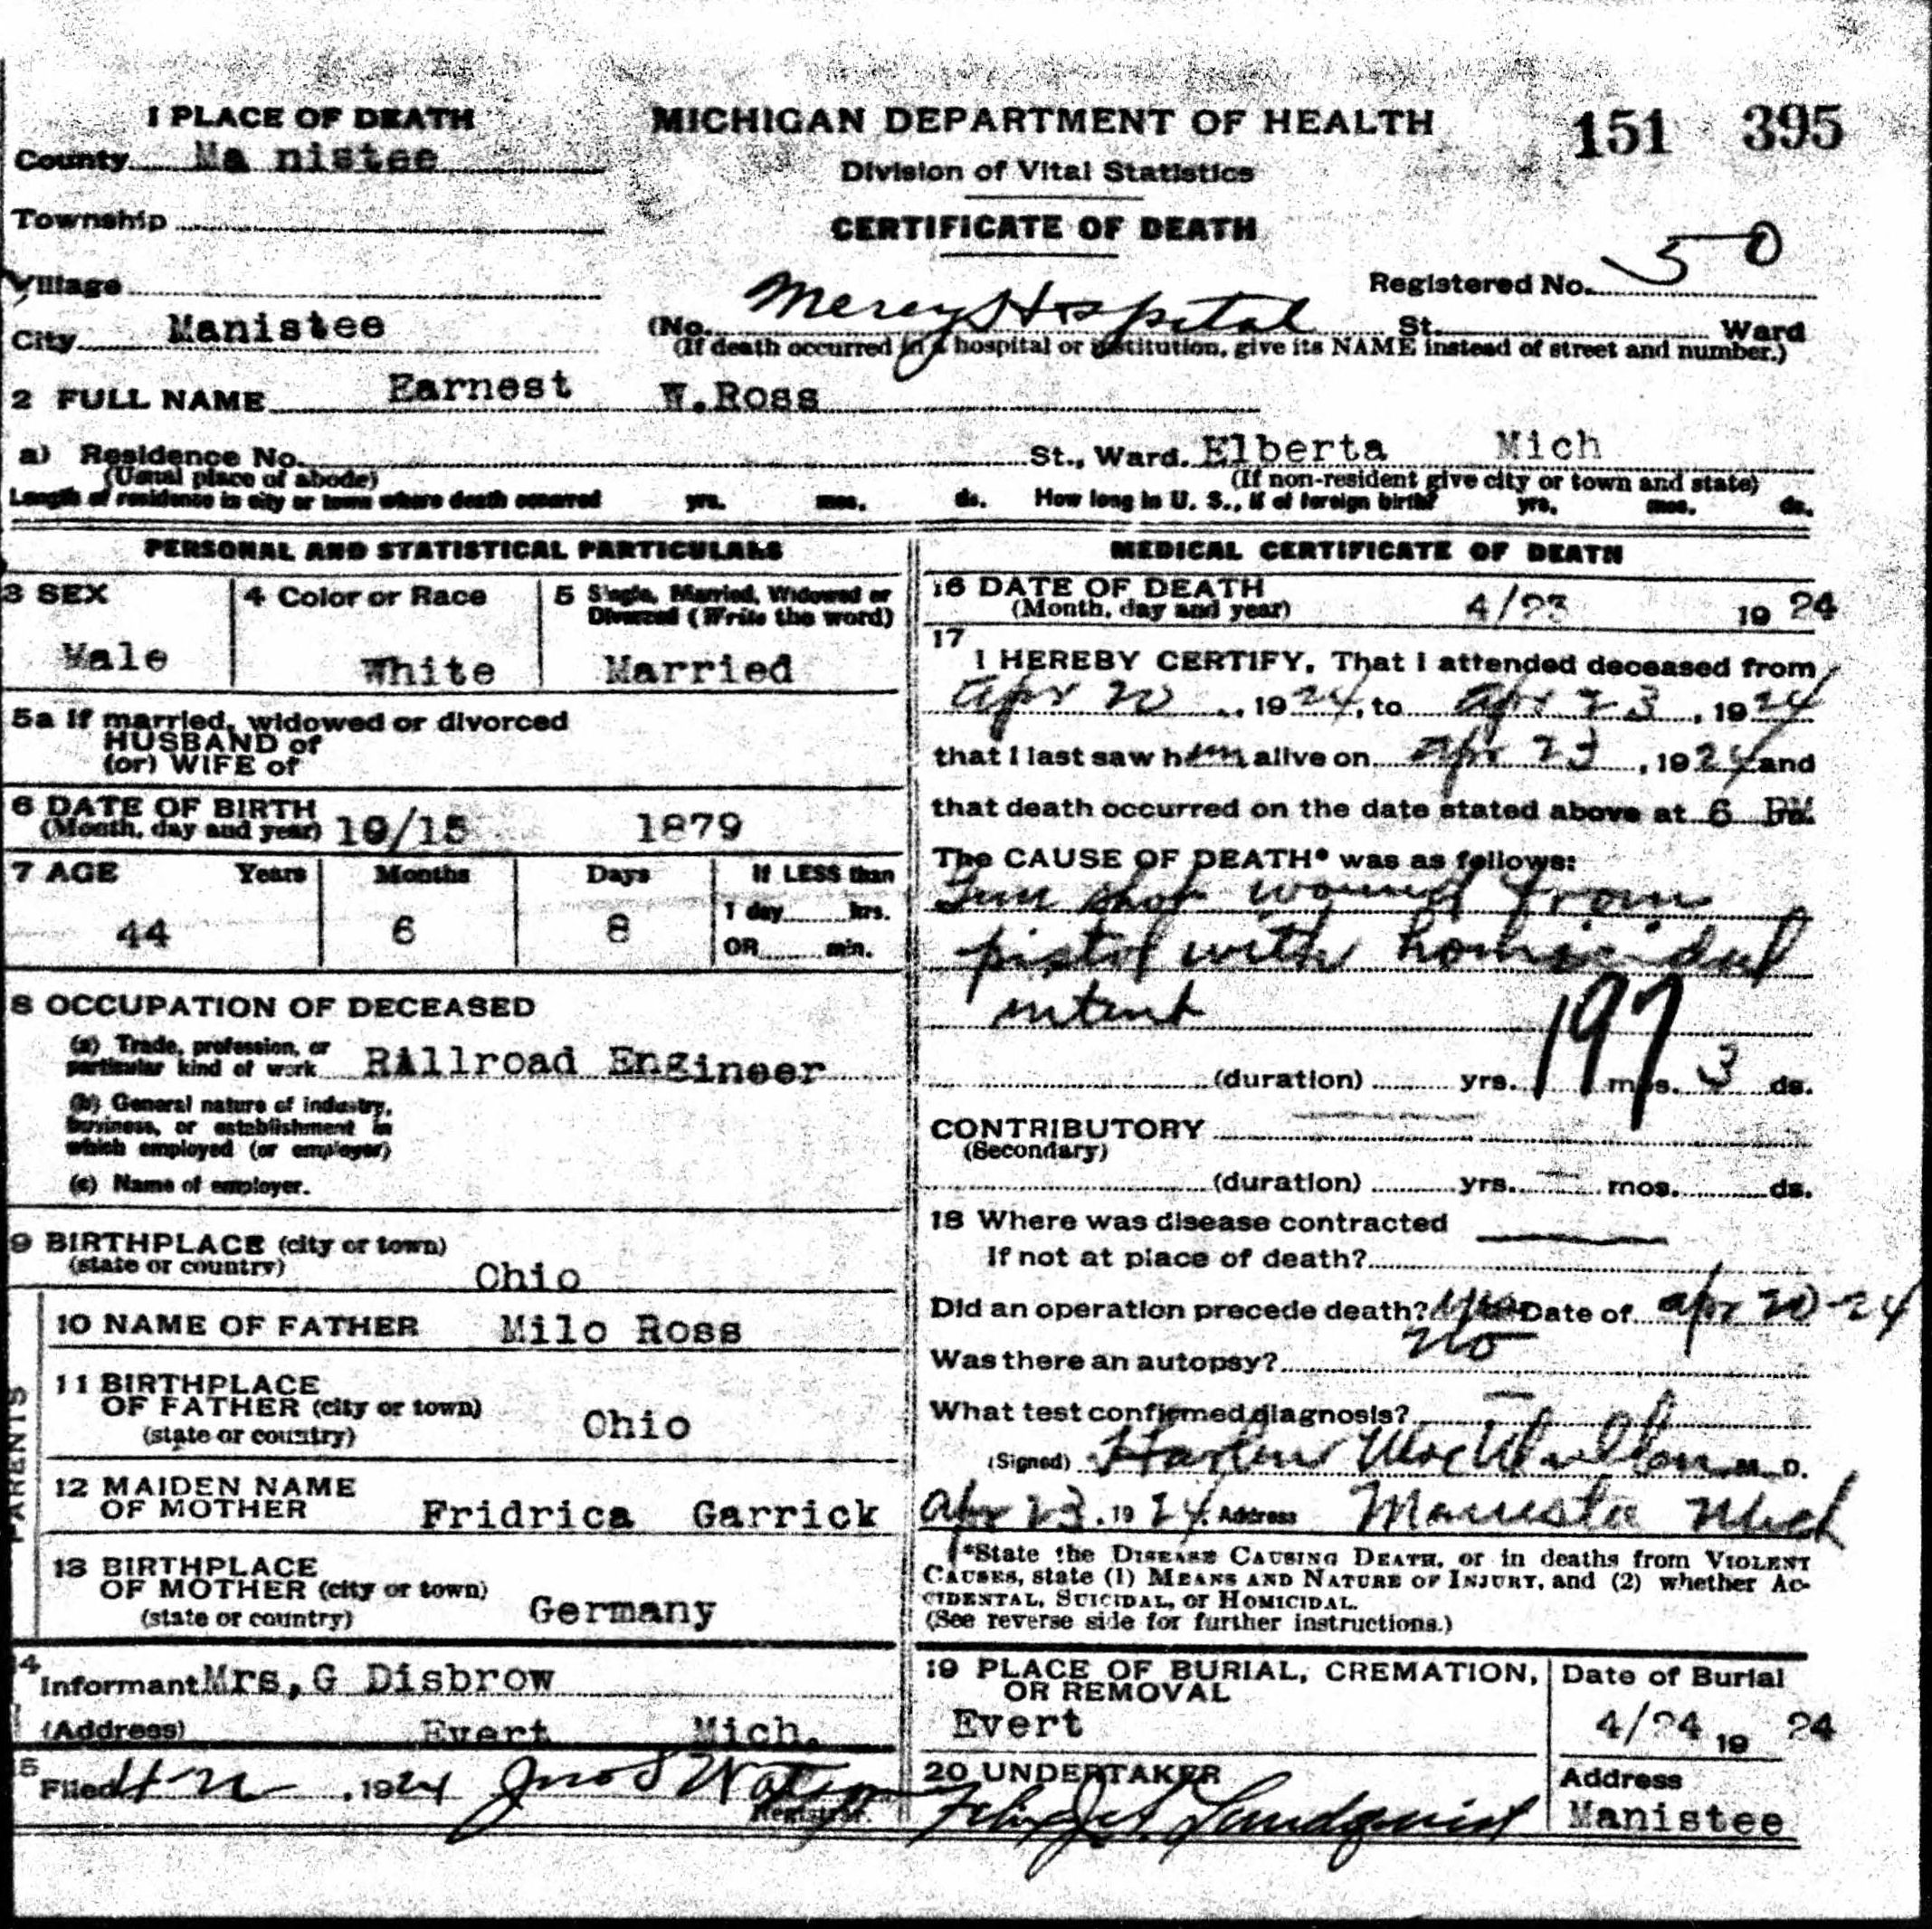 1 PLACE OF DEATH
MICHIGAN DEPARTMENT OF HEALTH
151 395
County Ma nistee
Division of Vital Statistics
Township
CERTIFICATE OF DEATH
Village
Registered No. 50
City Manistee
(No. Mercy Hospital St. Ward
(If death occurred in a hospital or institution, give its NAME instead of street and number.)
2 FULL NAME Earnest W.Ross
a) Residence No. St., Ward. Elberta Mich
(Usual place of abode) (If non-resident give city or town and state)
Length of residence in city or town where death occurred yrs. mos. ds. How long in U. S., if of foreign birth? yrs. mos. ds.
PERSONAL AND STATISTICAL PARTICULARS
3 SEX
Male
4 Color or Race
White
5 Single, Married, Widowed or
Divorced (Write the word)
Married
5a If married, widowed or divorced
HUSBAND of
(or) WIFE of
6 DATE OF BIRTH
(Month, day and year) 10/15 1879
7 AGE Years Months Days If LESS than
1 day hrs.
44 6 8
OR min.
8 OCCUPATION OF DECEASED
(a) Trade, profession, or
particular kind of work RAllroad Engineer
(b) General nature of industry,
business, or establishment in
which employed (or employer)
(c) Name of employer.
9 BIRTHPLACE (city or town)
(state or country) Ohio
PARENTS
10 NAME OF FATHER Milo Ross
11 BIRTHPLACE
OF FATHER (city or town)
(state or country) Ohio
12 MAIDEN NAME
OF MOTHER Fridrica Garrick
13 BIRTHPLACE
OF MOTHER (city or town)
(state or country) Germany
14
Informant Mrs,G Disbrow
(Address) Evert Mich.
15
Filed 1924 Jno S
Registrar.
MEDICAL CERTIFICATE OF DEATH
16 DATE OF DEATH
(Month, day and year) 4/23 19 24
17
I HEREBY CERTIFY, That I attended deceased from
Apr 20, 1924, to Apr 23, 1924
that I last saw him alive on Apr 23, 1924 and
that death occurred on the date stated above at 6 PM.
The CAUSE OF DEATH* was as follows:
Gun shot wound from
pistol with homicidal
intent
197
(duration) yrs. mos. 3 ds.
CONTRIBUTORY
(Secondary)
(duration) yrs. mos. ds.
18 Where was disease contracted
If not at place of death?
Did an operation precede death? Yes Date of Apr 20-24
Was there an autopsy? No
What test confirmed diagnosis?
(Signed) Harlen M. D.
Apr 23, 1924. Address Manistee Mich
*State the DISEASE CAUSING DEATH, or in deaths from VIOLENT
CAUSES, state (1) MEANS AND NATURE OF INJURY, and (2) whether AC-
CIDENTAL, SUICIDAL, or HOMICIDAL.
(See reverse side for further instructions.)
19 PLACE OF BURIAL, CREMATION,
OR REMOVAL
Evert
Date of Burial
4/24 19 24
20 UNDERTAKER
Lundquist
Address
Manistee